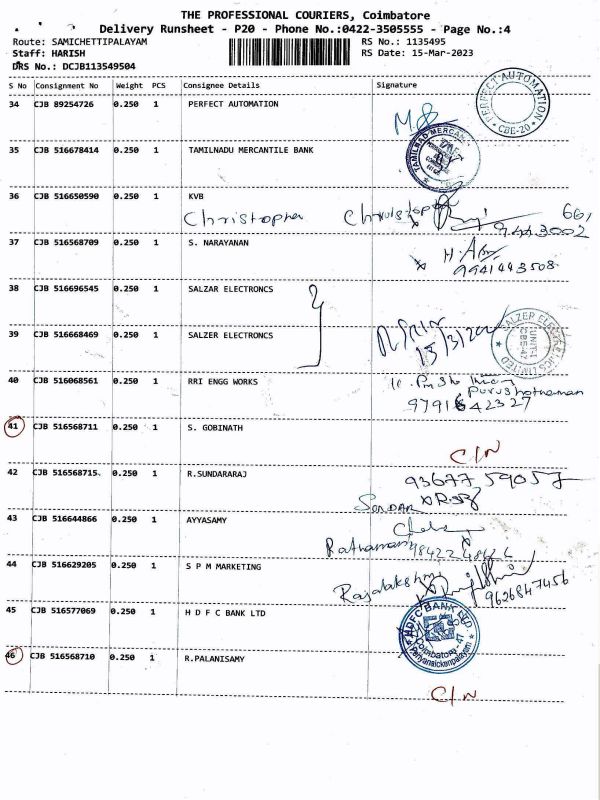 THE PROFESSIONAL COURIERS, Coimbatore
Delivery Runsheet - P20 - Phone No.:0422-3505555 - Page No.:4
Route: SAMICHETTIPALAYAM RS No.: 1135495
Staff: HARISH RS Date: 15-Mar-2023
DRS No.: DCJB113549504
S No Consignment No Weight PCS Consignee Details Signature
34 CJB 89254726 0.250 1 PERFECT AUTOMATION
PERFECT AUTOMATION
* CBE-20 *
35 CJB 516678414 0.250 1 TAMILNADU MERCANTILE BANK
36 CJB 516650590 0.250 1 KVB
Christopher
9443002
37 CJB 516568709 0.250 1 S. NARAYANAN
9941443508
38 CJB 516696545 0.250 1 SALZAR ELECTRONCS
39 CJB 516668469 0.250 1 SALZER ELECTRONCS
15/3/
40 CJB 516068561 0.250 1 RRI ENGG WORKS
Purushothaman
9791642327
41 CJB 516568711 0.250 1 S. GOBINATH
C/N
42 CJB 516568715. 0.250 1 R.SUNDARARAJ
93677 59057
43 CJB 516644866 0.250 1 AYYASAMY
44 CJB 516629205 0.250 1 S P M MARKETING
Rajalakshmi
9626847456
45 CJB 516577069 0.250 1 H D F C BANK LTD
HDFC BANK LTD
Coimbatore - 47
Periyanaickenpalayam
46 CJB 516568710 0.250 1 R.PALANISAMY
C/N